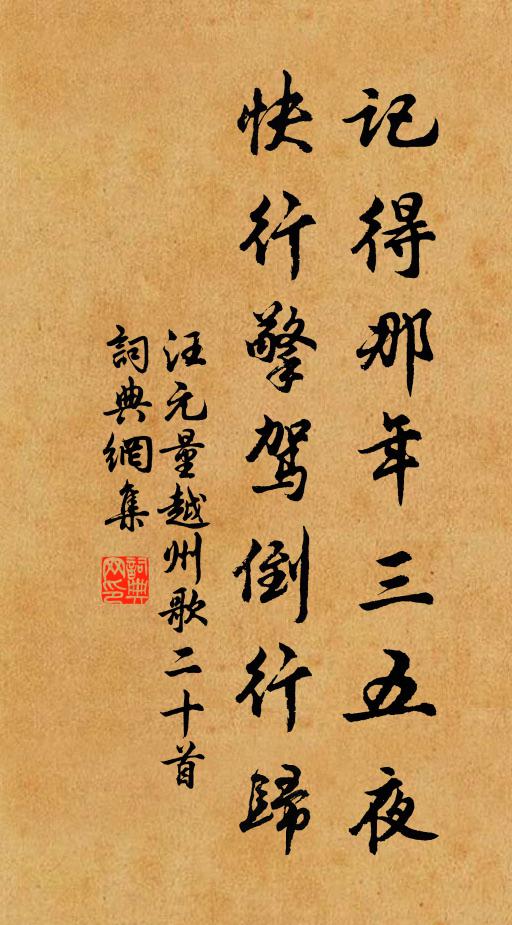 記得那年三五夜
快行擎駕倒行歸
汪元量越州歌二十首
詞典網集
詞典網印